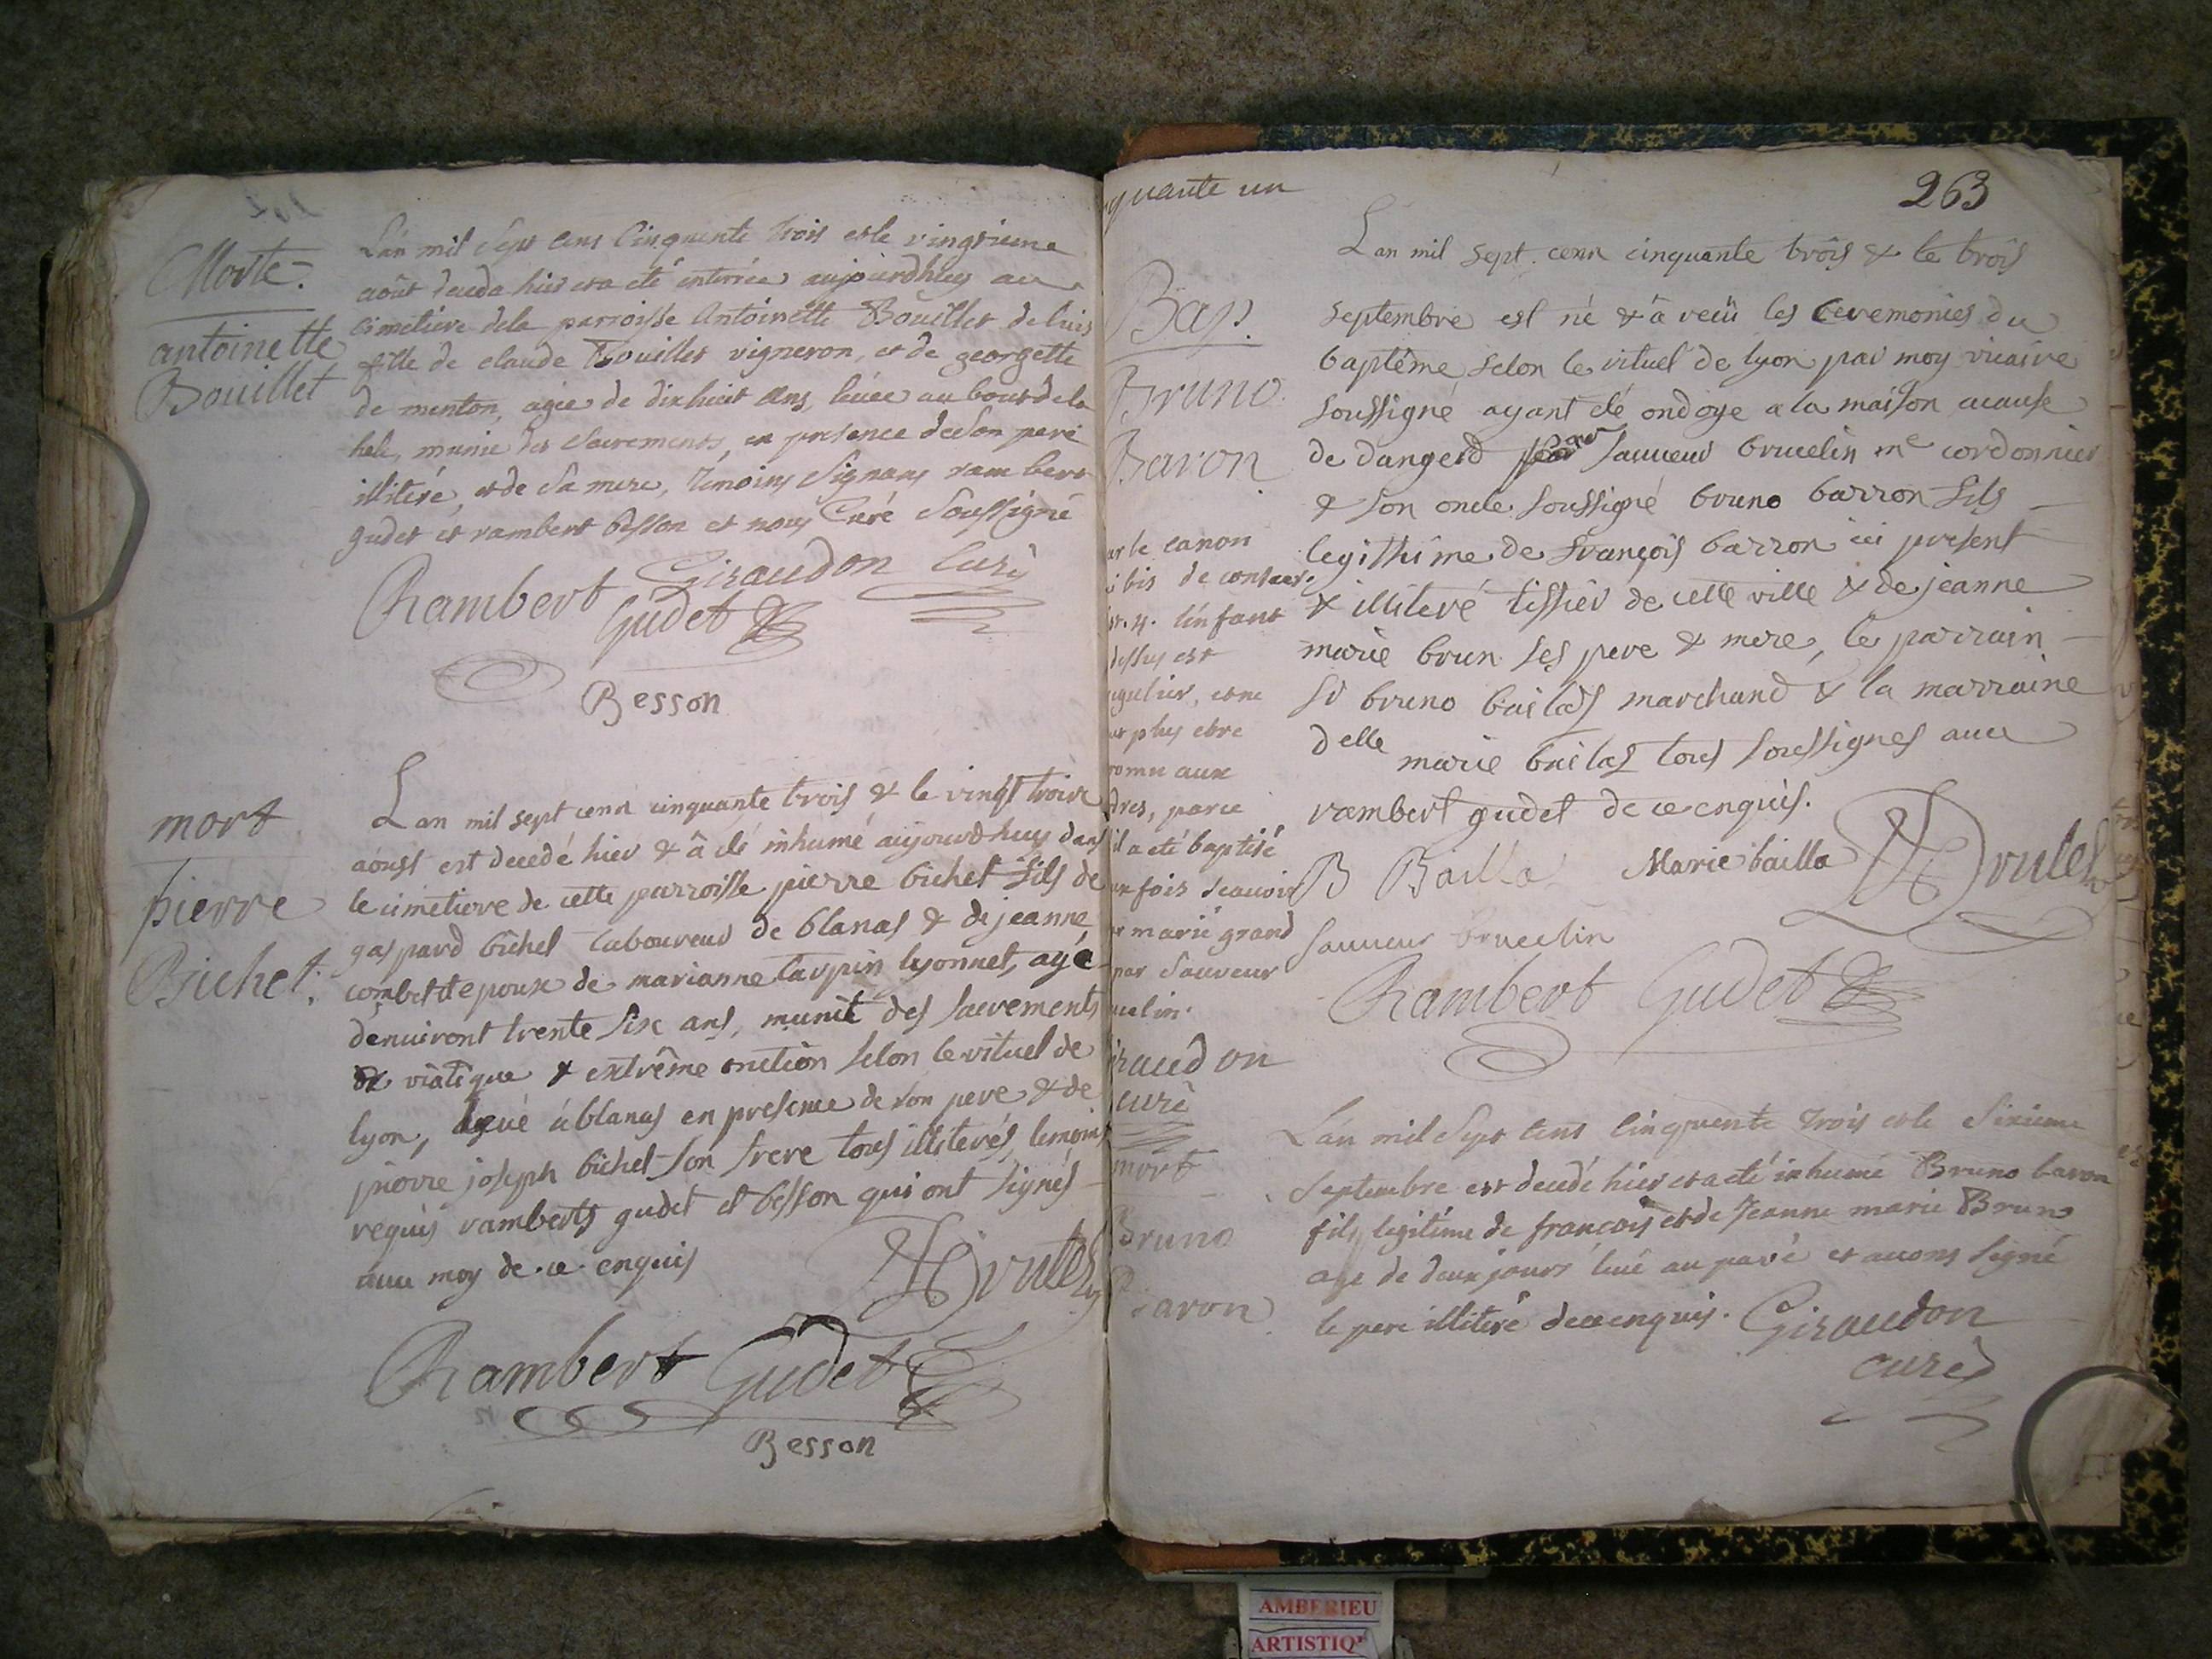 Morte
antoinette
Bouillet
L'an mil sept cens Cinquente trois et le vingtieme
août deceda hier et a eté enterrée aujourdhuy au
cimetiere dela parroisse Antoinette Bouillet de luis
fille de claude Bouillet vigneron, et de georgette
de menton, agée de dixhuit ans, levée au bout de la
hale, munie des sacrements, en presence de son pere
illiteré, et de sa mere, temoins signans rambert
gudet et rambert besson et nous Curé soussigné
Giraudon Curé
Rambert Gudet
Besson
mort
pierre
Bichet.
Lan mil sept cenn cinquante trois & le vingt troire
aoust est decedé hier & â eté inhumé aujourdhuy dans
le cimetiere de cette parroisse pierre bichet fils de
gaspard bichet laboureur de blanas & de jeanne
combet et epoux de marianne taupin lyonnet, agé
denuiront trente six ans, munit des sacrements
de viatique & extrême onction selon le rituel de
lyon, levé à blanas en presence de son pere & de
pierre joseph bichet son frere tous illiterés, temoins
requis ramberts gudet et besson qui ont signés
auec moy de ce enquis
Drulez
Rambert Gudet
Besson
quante un
263
Bap.
Bruno
Baron
Lan mil sept cenn cinquante trois & le trois
septembre est né & â reçü les ceremonies du
baptême selon le rituel de lyon par moy vicaire
soussigné ayant eté ondoye a la maison acause
de dangerd par sauueur brucelin me cordonnier
& son oncle soussigné bruno barron fils
legithime de françois barron ici present
& illiteré tissier de cette ville & de jeanne
marie brun ses pere & mere, le parrain
sr bruno bailas marchand & la marraine
delle marie bailas tous soussignes auec
rambert gudet de ce enquis.
B Bailla Marie bailla Drulez
sauueur brucelin
Rambert Gudet
ar le canon
ibis de consecr.
st. 4. l'infant
dessus est
egulier, et ne
eut plus etre
romu aux
dres, parce
il a eté baptisé
ux fois scauoir
r marie grand
par Sauveur
ucelin.
iraudon
curé
mort
Bruno
Baron
L'an mil sept cens Cinquente trois et le sixieme
septembre est decedé hier et a eté inhumé Bruno baron
fils legitime de francois et de Jeanne marie Brun
age de deux jours levé au pavé et avons signé
le pere illiteré de ce enquis. Giraudon
curé
AMBERIEU
ARTISTIQ